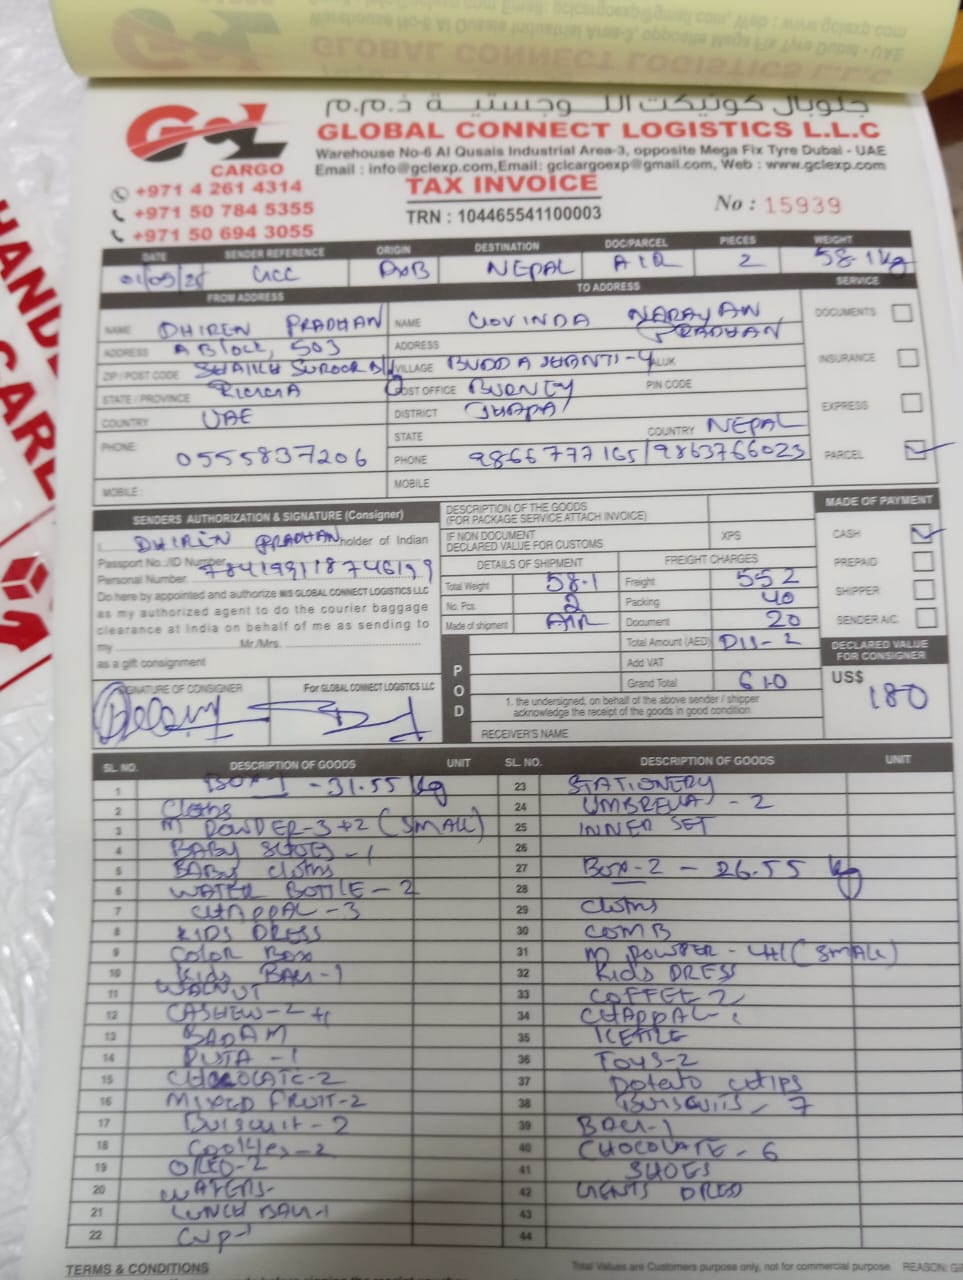 جلوبال كونيكت اللوجستية ذ.م.م
GLOBAL CONNECT LOGISTICS L.L.C
GCL CARGO
Warehouse No-6 Al Qusais Industrial Area-3, opposite Mega Fix Tyre Dubai - UAE
Email : info@gclexp.com,Email: gclcargoexp@gmail.com, Web : www.gclexp.com
+971 4 261 4314
+971 50 784 5355
+971 50 694 3055
TAX INVOICE
TRN : 104465541100003
No : 15939
DATE SENDER REFERENCE ORIGIN DESTINATION DOC/PARCEL PIECES WEIGHT
GCC DXB NEPAL AIR 2 58.1kg
FROM ADDRESS TO ADDRESS SERVICE
NAME DHIREN PRADHAN NAME GOVINDA NARAYAN PRADHAN DOCUMENTS
ADDRESS A Block, 503 ADDRESS
ZIP / POST CODE VILLAGE BUDDASHANTI-4 TALUK INSURANCE
STATE / PROVINCE POST OFFICE PIN CODE
COUNTRY UAE DISTRICT JHAPA EXPRESS
STATE COUNTRY NEPAL
PHONE 0555837206 PHONE 9866777165/9863766023 PARCEL
MOBILE: MOBILE
SENDERS AUTHORIZATION & SIGNATURE (Consigner)
I, DHIREN PRADHAN holder of Indian
Passport No./ID Number
Personal Number 784199118746199
Do here by appointed and authorize M/S GLOBAL CONNECT LOGISTICS LLC
as my authorized agent to do the courier baggage
clearance at India on behalf of me as sending to
my Mr./Mrs.
as a gift consignment
SIGNATURE OF CONSIGNER For GLOBAL CONNECT LOGISTICS LLC
DESCRIPTION OF THE GOODS
(FOR PACKAGE SERVICE ATTACH INVOICE)
IF NON DOCUMENT
DECLARED VALUE FOR CUSTOMS XPS
DETAILS OF SHIPMENT FREIGHT CHARGES
Total Weight 58.1 Freight 552
No. Pcs. 2 Packing 40
Made of shipment AIR Document 20
Total Amount (AED)
Add VAT
Grand Total 610
POD
1. the undersigned, on behalf of the above sender / shipper
acknowledge the receipt of the goods in good condition
RECEIVER'S NAME
MADE OF PAYMENT
CASH
PREPAID
SHIPPER
SENDER A/C.
DECLARED VALUE
FOR CONSIGNER
US$
180
SL. NO. DESCRIPTION OF GOODS UNIT SL. NO. DESCRIPTION OF GOODS UNIT
1 BOX-1 - 31.55 kg
2 Cloths
3 M POWDER-3+2 (SMALL)
4 BABY SHOES -1
5 BABY cloths
6 WATER BOTTLE - 2
7 CHAPPAL -3
8 KIDS DRESS
9 Color Box
10 Kids BAG-1
11 WALNUT
12 CASHEW-2+1
13 BADAM
14 PISTA -1
15 CHOCOLATE-2
16 MIXED FRUIT-2
17 Buiscuit-2
18 Cookies-2
19 OREO-2
20 WAFERS-
21 LUNCH BAG-1
22 Cup-1
23 STATIONERY
24 UMBRELLA - 2
25 INNER SET
26
27 Box-2 - 26.55 kg
28
29 cloths
30 COMB
31 M POWDER - 4+1 (SMALL)
32 Kids DRESS
33 COFFEE-2
34 CHAPPAL-
35 KETTLE
36 TOYS-2
37 Potato CHIPS
38 BUISQUITS - 7
39 BAG-1
40 CHOCOLATE - 6
41 SHOES
42 GENTS DRESS
43
44
TERMS & CONDITIONS
Total Values are Customers purpose only, not for commercial purpose